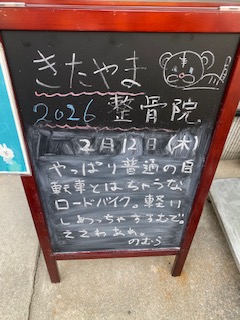 きたやま
2026 整骨院
2月12日(木)
やっぱり普通の自
転車とはちゃうな
ロードバイク。軽い
しめっちゃすすむで。
ええわぁぁ。
のむら